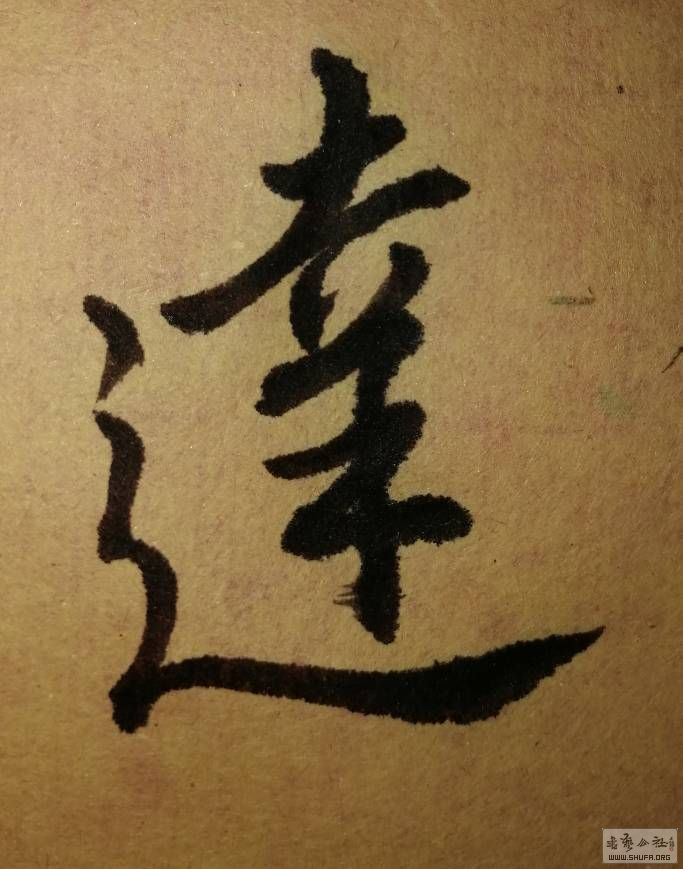 達
书艺公社
WWW.SHUFA.ORG